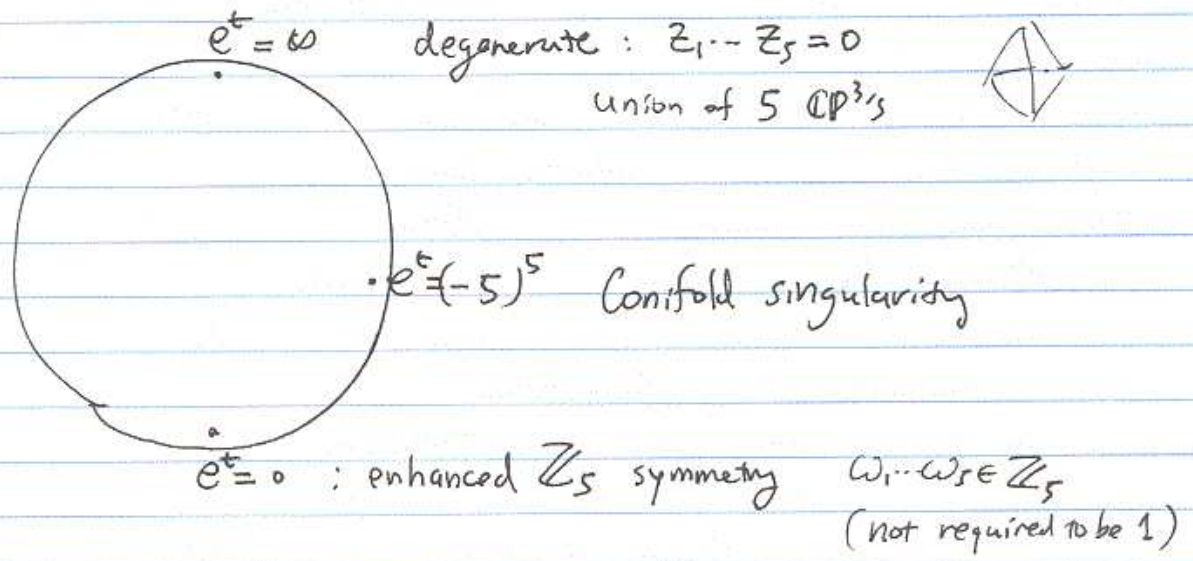 e^t = ∞ degenerate : Z₁ ⋯ Z₅ = 0
union of 5 ℂP³'s
e^t = (-5)^5 Conifold singularity
e^t = 0 : enhanced ℤ₅ symmetry ω₁⋯ω₅ ∈ ℤ₅
(not required to be 1)